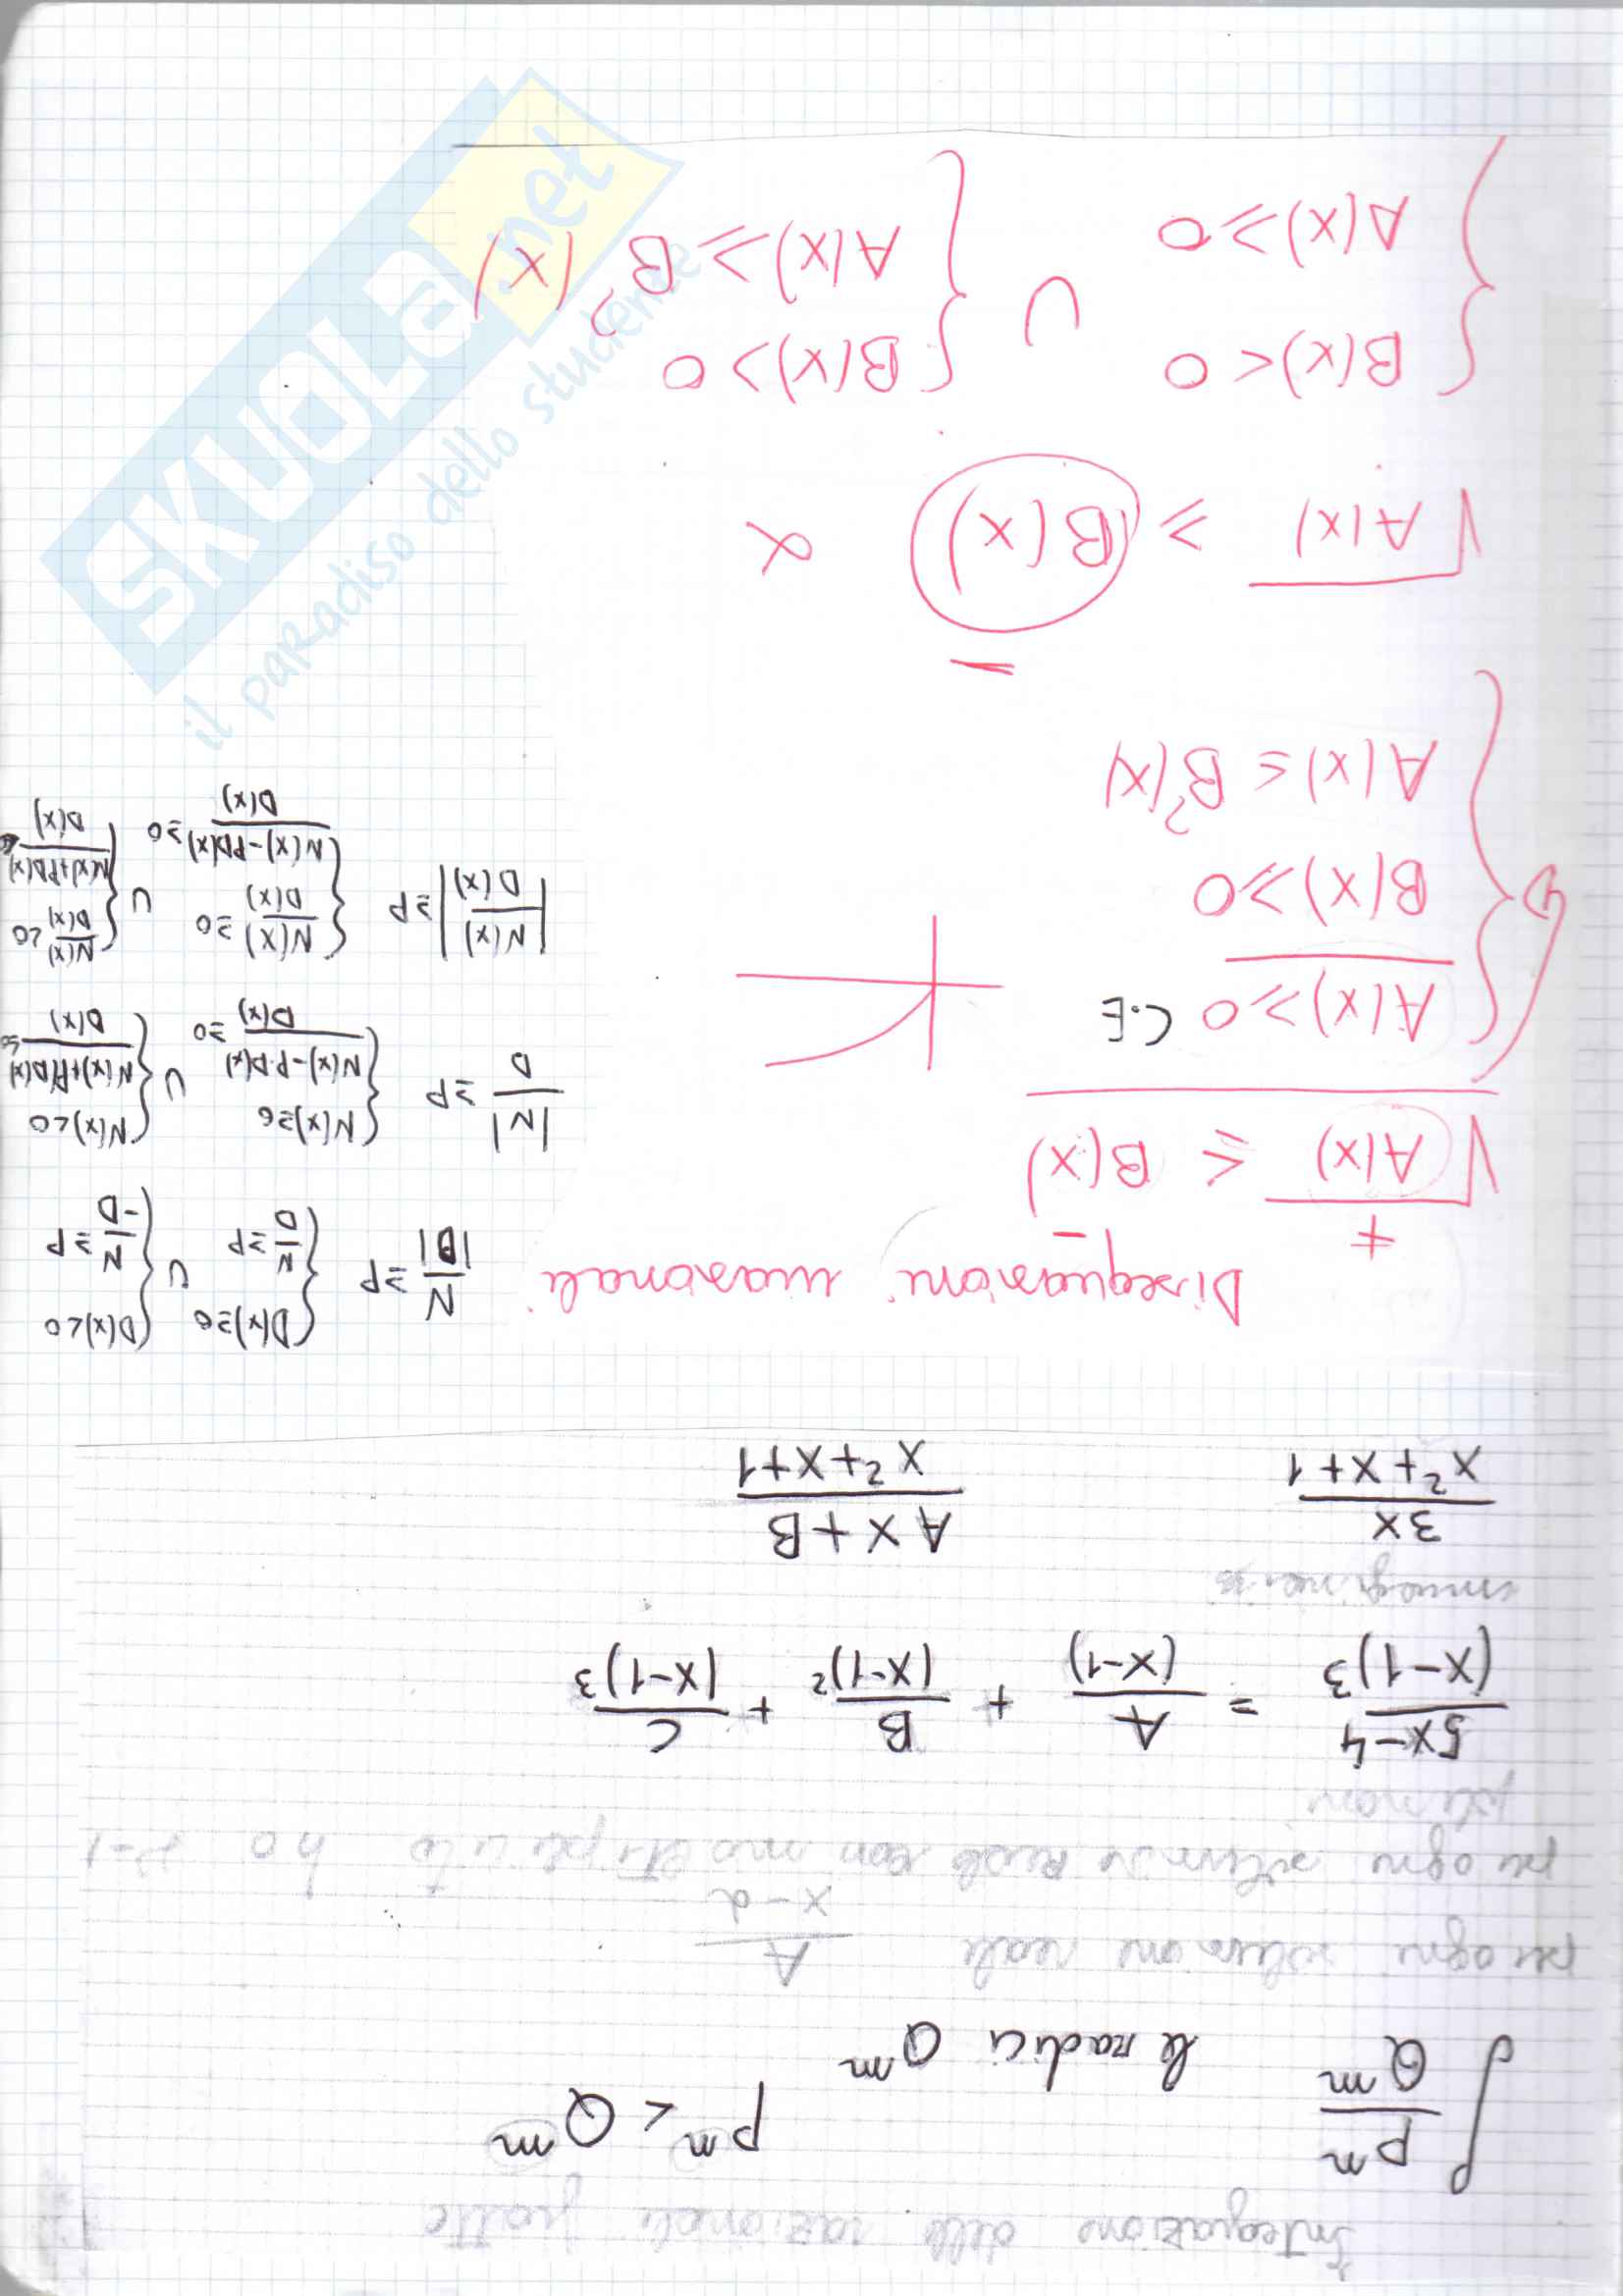 Integrazione delle razionali fratte
∫ Pn/Qm   Pn < Qm
le radici Qm
per ogni soluzione reale A/(x-α)
per ogni soluzione reale con molteplicità ho r-1
(5x-4)/(x-1)³ = A/(x-1) + B/(x-1)² + C/(x-1)³
immaginarie
3x/(x²+x+1)   (Ax+B)/(x²+x+1)
Disequazioni irrazionali
+ -
√A(x) ≤ B(x)
{ A(x) ≥ 0 C.E
B(x) ≥ 0
A(x) ≤ B²(x)
-
√A(x) ≥ B(x) α
{ B(x) < 0
A(x) ≥ 0
∪
{ B(x) > 0
A(x) ≥ B²(x)
N/|D| ≥ P { D(x) ≥ 0
N/D ≥ P
∪ { D(x) < 0
N/-D ≥ P
|N|/D ≥ P { N(x) ≥ 0
(N(x)-P·D(x))/D(x) ≥ 0
∪ { N(x) < 0
(N(x)+P(D(x))/D(x) ≤ 0
|N(x)/D(x)| ≥ P { N(x)/D(x) ≥ 0
(N(x)-PD(x))/D(x) ≥ 0
∪ { N(x)/D(x) < 0
(N(x)+PD(x))/D(x)
SKUOLA.net
il paradiso dello studente